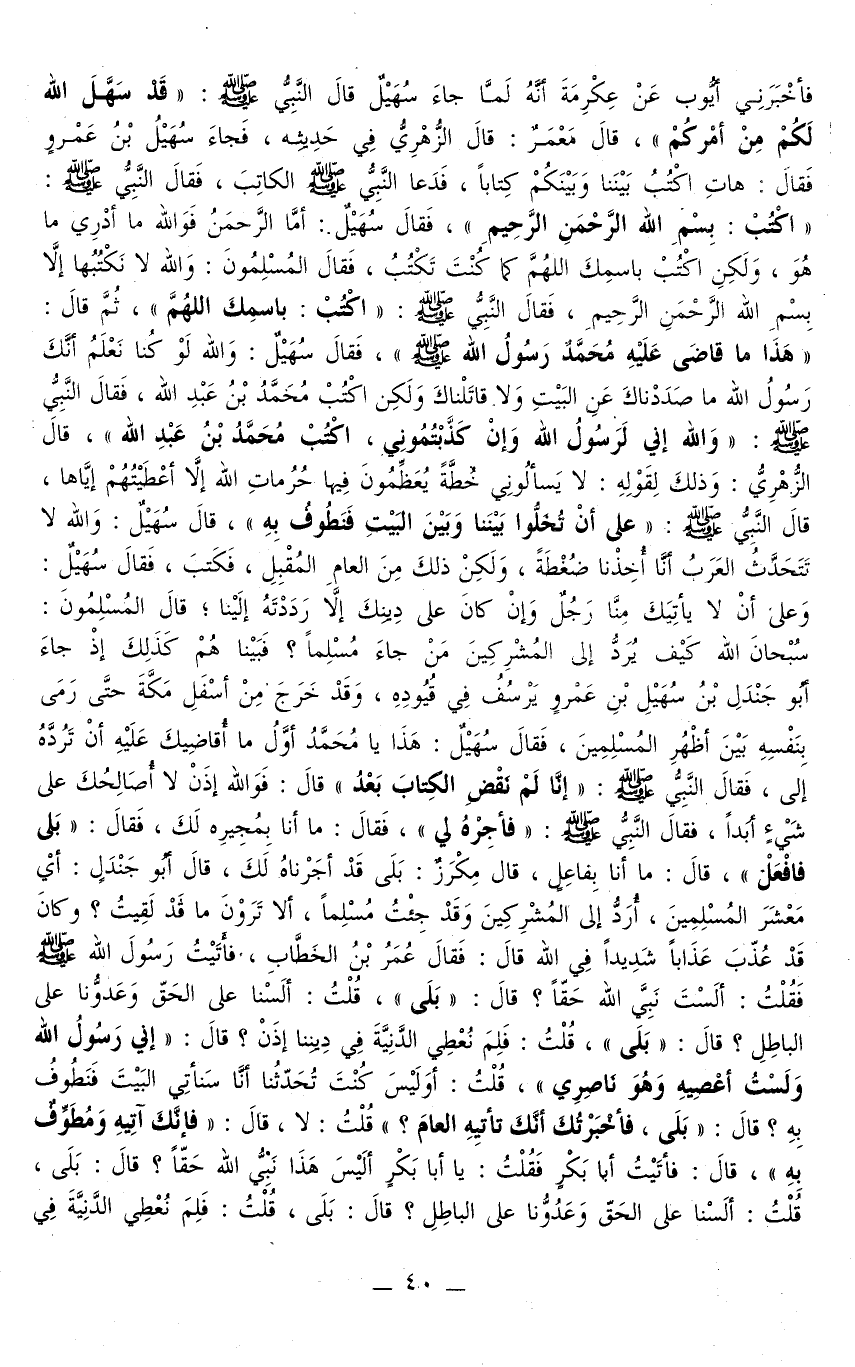 فأخْبَرَنِي أَيُّوب عَنْ عِكْرِمَةَ أَنَّهُ لَمَّا جاءَ سُهَيْلٌ قالَ النَّبِيُّ ﷺ : « قَدْ سَهَّلَ الله
لَكُمْ مِنْ أَمْرِكُمْ » ، قالَ مَعْمَرٌ : قالَ الزُّهْرِيُّ فِي حَدِيثِه ، فَجاءَ سُهَيْلُ بْنُ عَمْروٍ
فَقالَ : هاتِ اكْتُبُ بَيْنَنا وَبَيْنَكُمْ كِتاباً ، فَدَعا النَّبِيُّ ﷺ الكاتِبَ ، فَقالَ النَّبِيُّ ﷺ :
« اكْتُبْ : بِسْمِ الله الرَّحْمَنِ الرَّحِيمِ » ، فَقالَ سُهَيْلٌ : أمَّا الرَّحْمَنُ فَوَالله ما أدْرِي ما
هُوَ ، وَلَكِنِ اكْتُبْ باسمِكَ اللهُمَّ كما كُنْتَ تَكْتُبُ ، فَقالَ المُسْلِمُونَ : وَالله لا نَكْتُبُها إلَّا
بِسْمِ الله الرَّحْمَنِ الرَّحِيمِ ، فَقالَ النَّبِيُّ ﷺ : « اكْتُبْ : باسمِكَ اللهُمَّ » ، ثُمَّ قالَ :
« هَذَا ما قاضَى عَلَيْهِ مُحَمَّدٌ رَسُولُ الله ﷺ » ، فَقالَ سُهَيْلٌ : وَالله لَوْ كُنا نَعْلَمُ أنَّكَ
رَسُولُ الله ما صَدَدْناكَ عَنِ البَيْتِ وَلا قاتَلْناكَ وَلَكِن اكْتُبْ مُحَمَّدُ بْنُ عَبْدِ الله ، فَقالَ النَّبِيُّ
ﷺ : « وَالله إني لَرَسُولُ الله وَإنْ كَذَّبْتُمُوني ، اكْتُبْ مُحَمَّدُ بْنُ عَبْدِ الله » ، قالَ
الزُّهْرِيُّ : وَذلكَ لِقَوْلِهِ : لا يَسألُوني خُطَّةً يُعَظِّمُونَ فِيها حُرُماتِ الله إلَّا أعْطَيْتُهُمْ إيَّاها ،
قالَ النَّبِيُّ ﷺ : « على أنْ تُخَلُّوا بَيْنَنا وَبَيْنَ البَيْتِ فَنَطُوفُ بِهِ » ، قالَ سُهَيْلٌ : وَالله لا
تَتَحَدَّثُ العَرَبُ أنَّا أُخِذْنا ضُغْطَةً ، وَلَكِنْ ذلكَ مِنَ العامِ المُقْبِلِ ، فَكَتَبَ ، فَقالَ سُهَيْلٌ :
وَعلىَ أنْ لا يأتِيَكَ مِنَّا رَجُلٌ وَإنْ كانَ على دِينِكَ إلَّا رَدَدْتَهُ إلَيْنا ؛ قالَ المُسْلِمُونَ :
سُبْحانَ الله كَيْف يُرَدُّ إلى المُشْرِكِينَ مَنْ جاءَ مُسْلِماً ؟ فَبَيْنا هُمْ كَذَلِكَ إذ جاءَ
أبُو جَنْدَلِ بْنُ سُهَيْلِ بْنِ عَمْروٍ يَرْسُفُ فِي قُيُودِهِ ، وَقَدْ خَرَجَ مِنْ أسْفَلِ مَكَّةَ حتَّى رَمَى
بِنَفْسِهِ بَيْنَ أظْهُرِ المُسْلِمِينَ ، فَقالَ سُهَيْلٌ : هَذَا يا مُحَمَّدُ أوَّلُ ما أُقاضِيكَ عَلَيْهِ أنْ تَرُدَّهُ
إلى ، فَقالَ النَّبِيُّ ﷺ : « إنَّا لَمْ نَقْضِ الكِتابَ بَعْدُ » قالَ : فَوَالله إذَنْ لا أُصَالِحُكَ على
شَيْءٍ أبَداً ، فَقالَ النَّبِيُّ ﷺ : « فأجِزْهُ لي » ، فَقالَ : ما أنا بِمُجِيرِه لَكَ ، فَقالَ : « بَلى
فافْعَلْ » ، قالَ : ما أنا بِفاعِلٍ ، قال مِكْرَزٌ : بَلَى قَدْ أجَرْناهُ لَكَ ، قالَ أبُو جَنْدَلٍ : أيْ
مَعْشَرَ المُسْلِمِينَ ، أُرَدُّ إلى المُشْرِكِينَ وَقَدْ جِئْتُ مُسْلِماً ، ألا تَرَوْنَ ما قَدْ لَقِيتُ ؟ وكانَ
قَدْ عُذِّبَ عَذَاباً شَدِيداً فِي الله قالَ : فَقالَ عُمَرُ بْنُ الخَطَّابِ ، فأتَيْتُ رَسُولَ الله ﷺ
فَقُلْتُ : ألَسْتَ نَبِيَّ الله حَقّاً ؟ قالَ : « بَلَى » ، قُلْتُ : ألَسْنا على الحَقّ وَعَدُوُّنا على
الباطِلِ ؟ قالَ : « بَلَى » ، قُلْتُ : فَلِمَ نُعْطِي الدَّنِيَّةَ فِي دِينِنا إذَنْ ؟ قالَ : « إني رَسُولُ الله
وَلَسْتُ أعْصِيهِ وَهُوَ ناصِرِي » ، قُلْتُ : أوَلَيْسَ كُنْتَ تُحَدّثُنا أنَّا سَنأتي البَيْتَ فَنَطُوفُ
بِهِ ؟ قالَ : « بَلَى ، فأخْبَرْتُكَ أنَّكَ تأتيهِ العامَ ؟ » قُلْتُ : لا ، قالَ : « فإنَّكَ آتِيهِ وَمُطَوِّفٌ
بِهِ » ، قالَ : فأتَيْتُ أبا بَكْرٍ فَقُلْتُ : يا أبا بَكْرٍ ألَيْسَ هَذَا نَبِيُّ الله حَقّاً ؟ قالَ : بَلَى ،
قُلْتُ : ألَسْنا على الحَقّ وَعَدُوُّنا على الباطِلِ ؟ قالَ : بَلَى ، قُلْتُ : فَلِمَ نُعْطِي الدَّنِيَّةَ فِي
— ٤٠ —